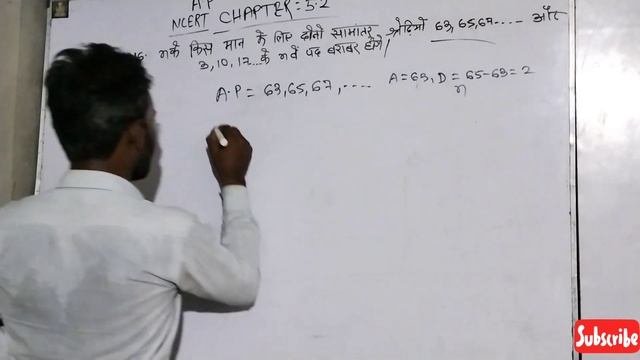 A P
NCERT CHAPTER:3.2
16. nके किस मान के लिए दोनों सामांतर श्रेढ़ियों 63,65,67.... और
3,10,17...के nवें पद बराबर होंगे/
A.P = 63,65,67,.... A=63, D = 65-63=2
n
Subscribe